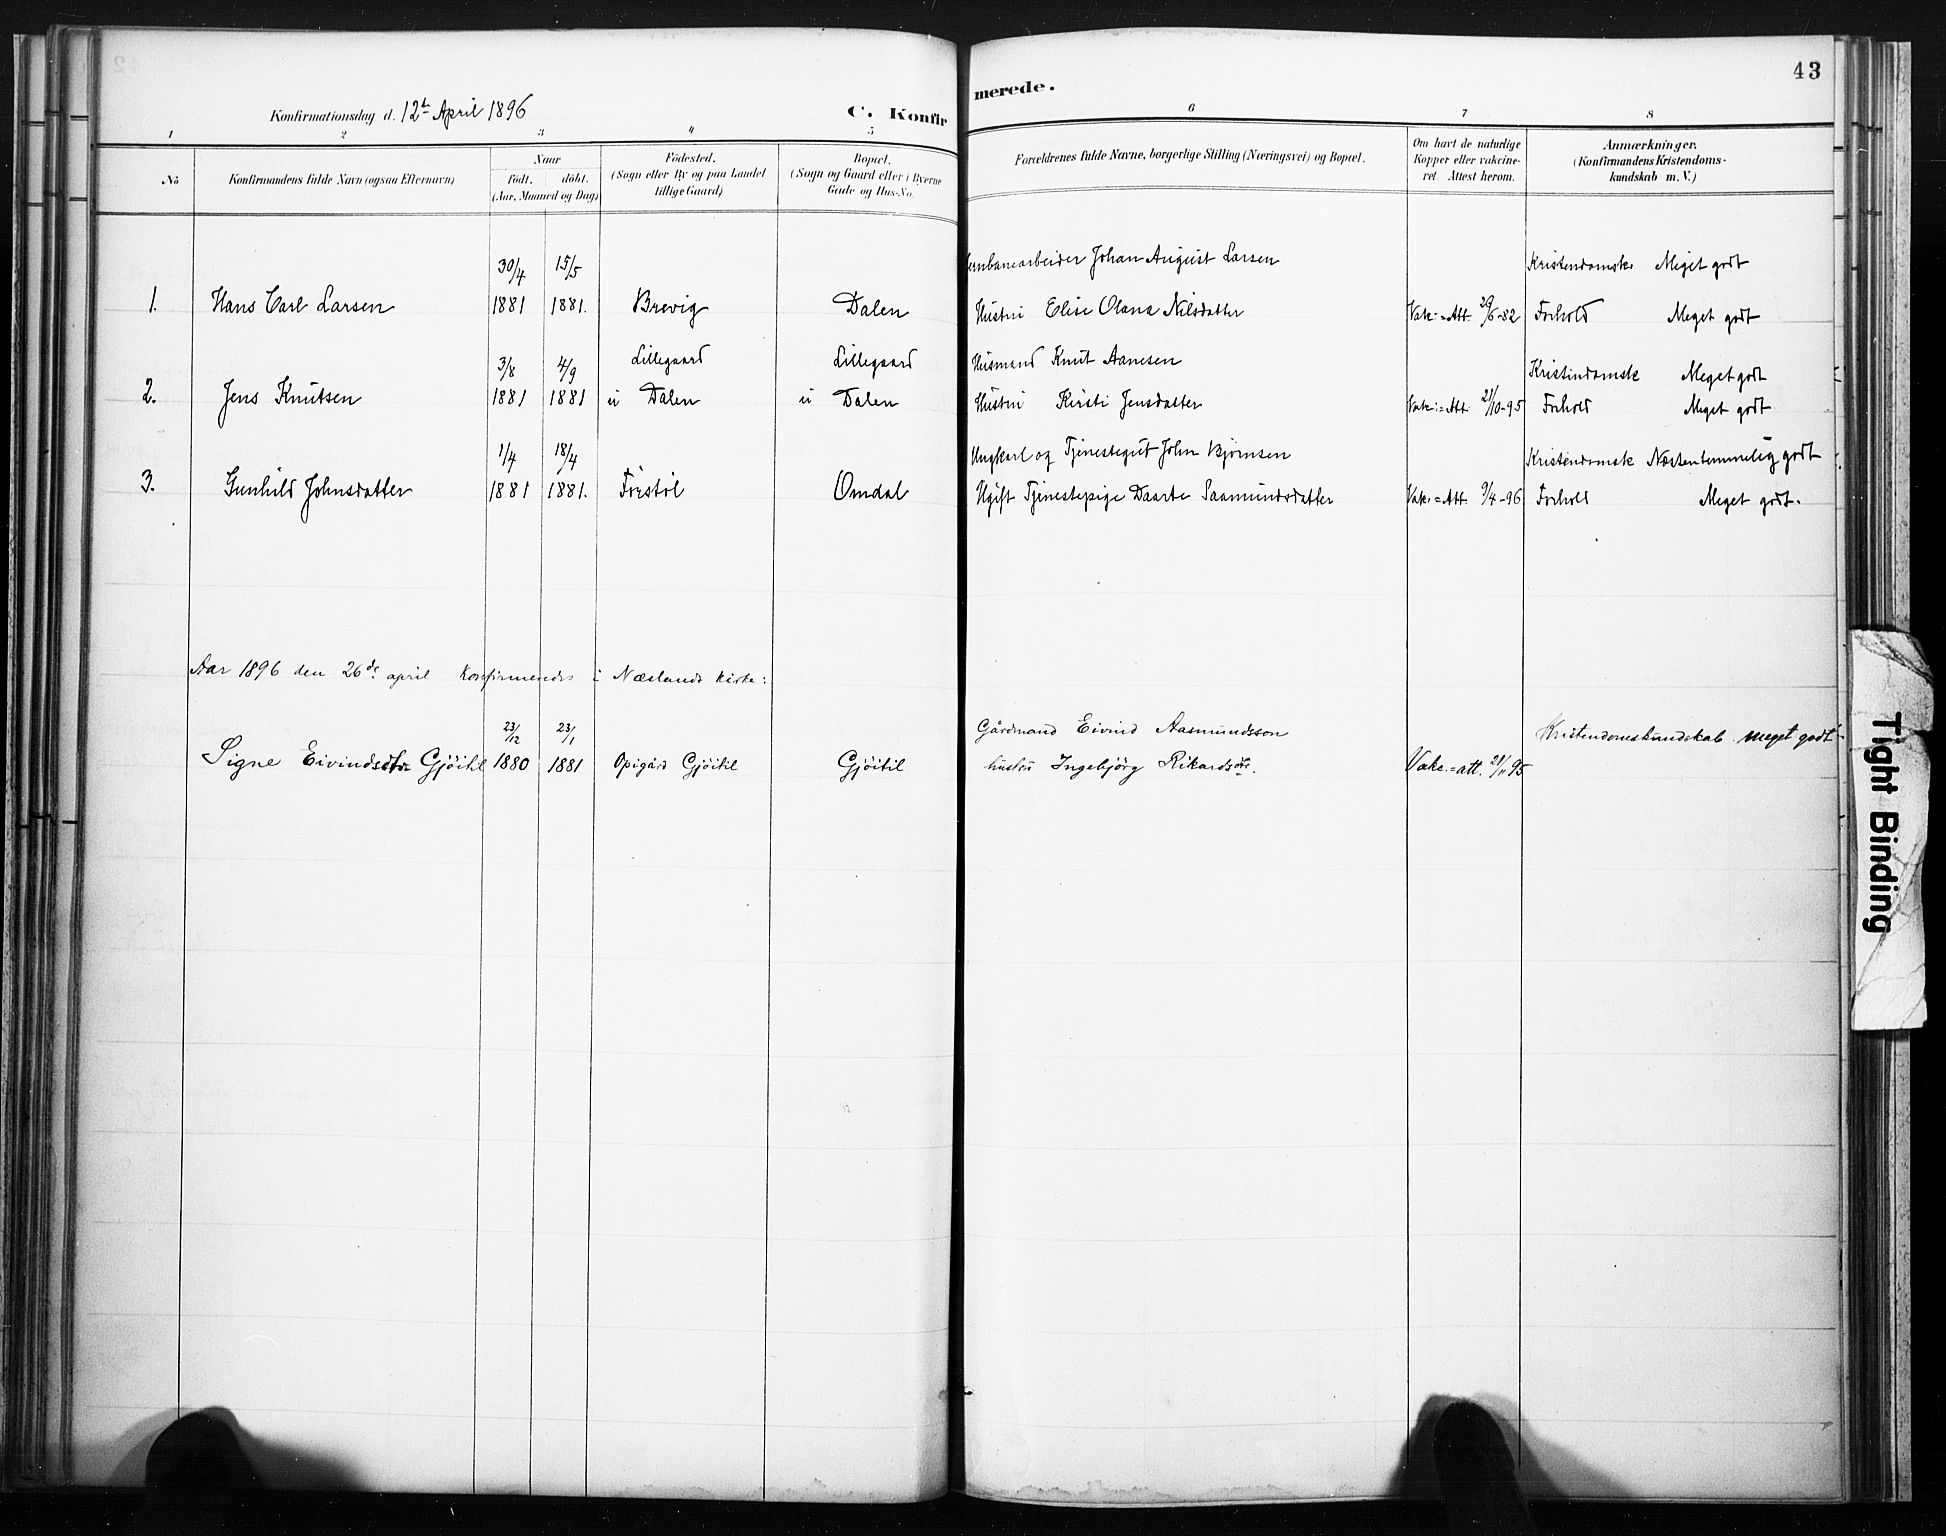 43
Konfirmationsdag d. 12te April 1896 C. Konfir merede.
1 2 3 4 5 6 7 8
No Konfirmandens fulde Navn (ogsaa Efternavn) Naar Født. døbt. (Aar, Maaned og Dag) Fødested. (Sogn eller By og paa Landet tillige Gaard) Bopæl. (Sogn og Gaard eller i Byerne Gade og Hus-No. Forældrenes fulde Navne, borgerlige Stilling (Næringsvei) og Bopæl. Om havt de naturlige Kopper eller vakcineret. Attest herom. Anmærkninger. (Konfirmandens Kristendomskundskab m. V.)
30/4 15/5 ernbanearbeider Johan August Larsen Kristendomsk. Meget godt
1. Hans Carl Larsen 1881 1881. Brevig Dalen Hustru Elise Olana Nilsdatter Vak.=Att. 20/6-82 Forhold Meget godt
3/8 4/9 Lillegaard Lillegaard Husmand Knut Aanesen Kristindomsk Meget godt
2. Jens Knutsen 1881 1881 u Dalen u Dalen Hustru Kirsti Jensdatter Vak.=Att. 21/10-95 Forhold Meget godt
1/4 18/4 Ungkarl og Tjenestegut John Bjørnsen Kristendomsk Næstentemmelig godt
3. Gunhild Johnsdatter 1881 1881. Førstøl Omdal Ugift Tjenestepige Daarte Saamundsdatter Vak.=Att. 9/4-96 Forhold Meget godt.
Aar 1896 den 26de april Konfirmendes i Næslands kirke:
23/12 23/1 Gårdmand Eivind Aasmundsson Kristendomskundskab meget godt
Signe Eivindsdtr Gjöitil 1880 1881 Opigård Gjöitil Gjöitil hustru Ingebjörg Rikardsdtr. Vakc.=att. 21/11 95
Tight Binding